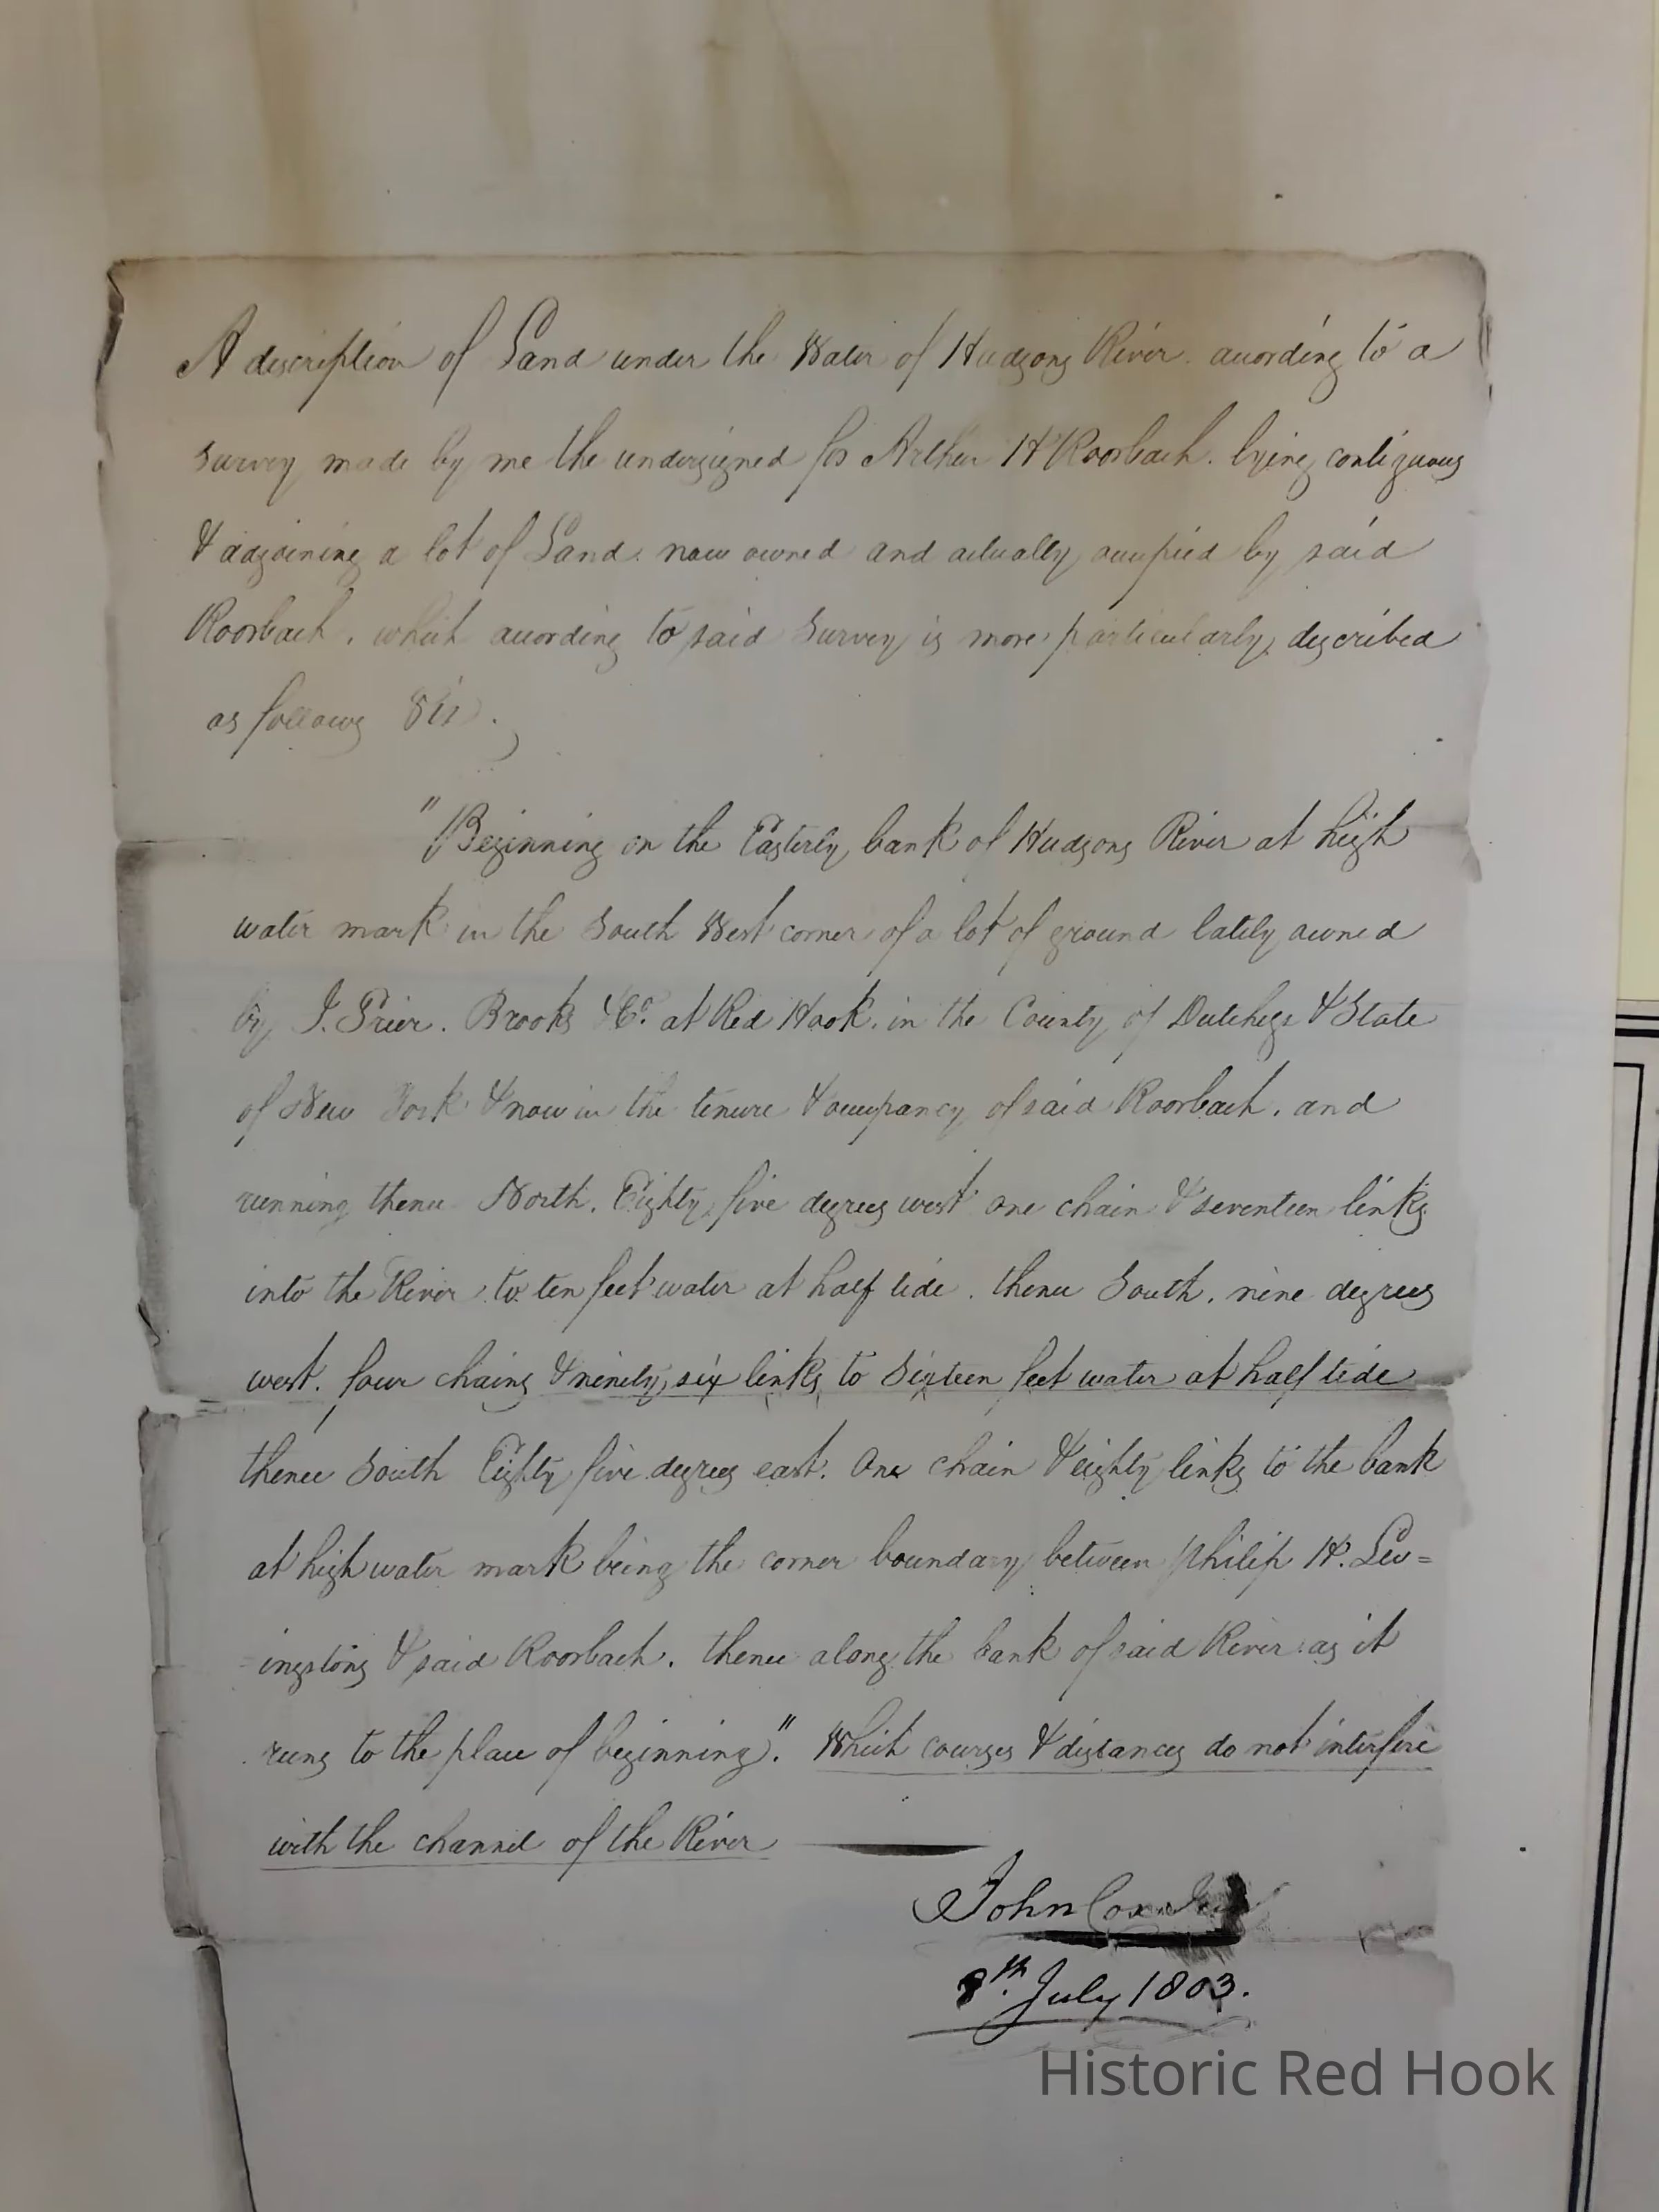 A description of Land under the Water of Hudsons River. according to a
survey made by me the undersigned for Arthur H Roorbach. lying contiguous
& adjoining a lot of Land. now owned and actually occupied by said
Roorbach. which according to said Survey is more particularly described
as follows Viz.
"Beginning on the Easterly bank of Hudsons River at high
water mark in the South West corner of a lot of ground lately owned
by J. Brooks & Co. at Red Hook. in the County of Dutchess & State
of New York & now in the tenure & occupancy of said Roorbach. and
running thence North. Eighty five degrees west one chain & seventeen links
into the River to ten feet water at half tide. thence South. nine degrees
west. four chains & ninety six links to Sixteen feet water at half tide
thence South Eighty five degrees east. One chain & eighty links to the bank
at high water mark being the corner boundary between Philip H. Liv=
ingstons & said Roorbach. thence along the bank of said River as it
runs to the place of beginning". Which courses & distances do not interfere
with the channel of the River
John Cox
8th. July 1803.
Historic Red Hook